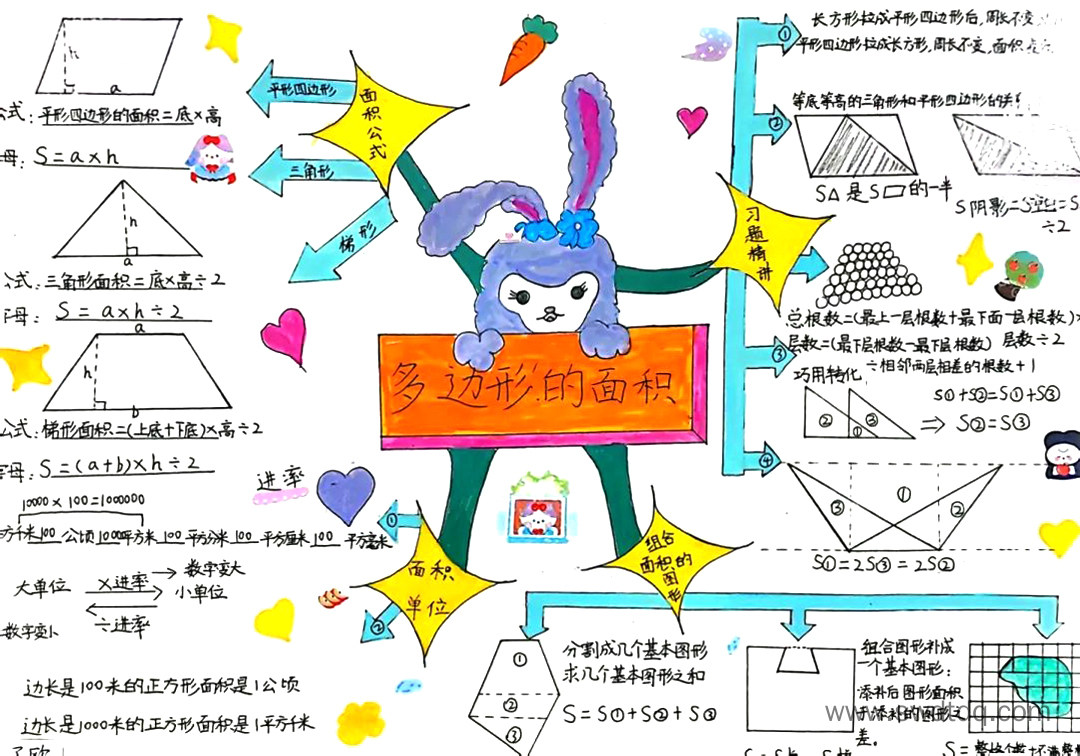 多边形的面积
面积公式
平行四边形
三角形
梯形
h
a
公式：平行四边形的面积=底×高
母：S=a×h
h
a
公式：三角形面积=底×高÷2
母：S=a×h÷2
a
h
b
公式：梯形面积=(上底+下底)×高÷2
字母：S=(a+b)×h÷2
面积单位
①
进率
10000×100=1000000
方千米 100 公顷 10000 平方米 100 平方分米 100 平方厘米 100 平方毫米
大单位 ×进率 数字变大
小单位
÷进率
数字变小
②
边长是100米的正方形面积是1公顷
边长是1000米的正方形面积是1平方千米
习题精讲
①
长方形拉成平行四边形后，周长不变
平行四边形拉成长方形，周长不变，面积
②
等底等高的三角形和平行四边形的关
S△是S▱的一半
S阴影=S空白=S
÷2
③
总根数=(最上一层根数+最下面一层根数)×
层数÷2
层数=(最下层根数-最下层根数)
÷相邻两层相差的根数+1
巧用转化
② ① ③
S①+S②=S①+S③
⇒ S②=S③
④
③ ① ②
S①=2S③=2S②
组合面积的图形
①
②
③
分割成几个基本图形
求几个基本图形之和
S=S①+S②+S③
组合图形补成
一个基本图形：
添补后图形面积
添补的图形
差。